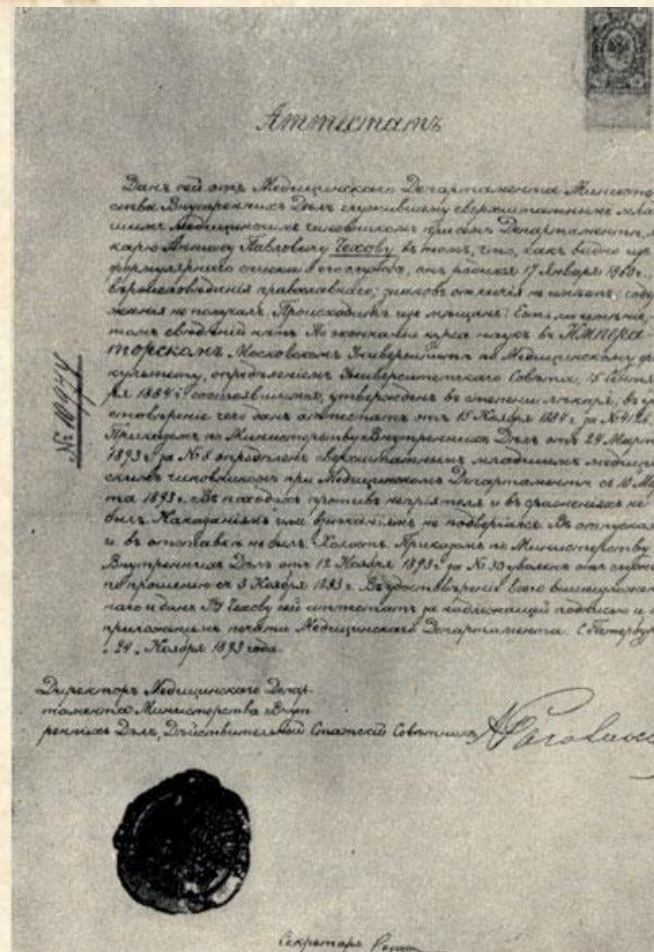 Аттестатъ
Данъ сей отъ Медицинскаго Департамента Министе
ства Внутреннихъ Дѣлъ служившему сверхштатнымъ млад
шимъ Медицинскимъ чиновникомъ при семъ Департаментѣ, лѣ
карю Антону Павловичу Чехову въ томъ, что, какъ видно изъ
формулярнаго списка о его службѣ, онъ родился 17 Января 1860 г.,
вѣроисповѣданія православнаго; знаковъ отличія не имѣетъ; содер
жанія не получалъ. Происходитъ изъ мѣщанъ. Есть ли имѣніе,
томъ свѣдѣній нѣтъ. По окончаніи курса наукъ въ ИМПЕРА
ТОРСКОМЪ Московскомъ Университетѣ по Медицинскому фа
культету, опредѣленіемъ Университетскаго Совѣта, 15 Сентяб
ря 1884 г. состоявшимся, утвержденъ въ степени лѣкаря, въ удо
стовѣреніе чего данъ аттестатъ отъ 15 Ноября 1884 г. за № 4126.
Приказомъ по Министерству Внутреннихъ Дѣлъ отъ 24 Марта
1893 г. за № 8 опредѣленъ сверхштатнымъ младшимъ медицин
скимъ чиновникомъ при Медицинскомъ Департаментѣ съ 10 Мар
та 1893 г. Въ походахъ противъ непріятеля и въ сраженіяхъ не
былъ. Наказаніямъ или взысканіямъ не подвергался. Въ отпускахъ
и въ отставкѣ не былъ. Холостъ. Приказомъ по Министерству
Внутреннихъ Дѣлъ отъ 12 Ноября 1893 г. за № 30 уволенъ отъ службы
по прошенію съ 3 Ноября 1893 г. Въ удостовѣреніе всего вышеизложен
наго и данъ Чехову сей аттестатъ за надлежащей подписью и съ
приложеніемъ печати Медицинскаго Департамента. С. Петербург
"24" Ноября 1893 года.
№ 10944
Директоръ Медицинскаго Депар-
тамента Министерства Внут
реннихъ Дѣлъ, Дѣйствительный Статскій Совѣтникъ
Секретарь